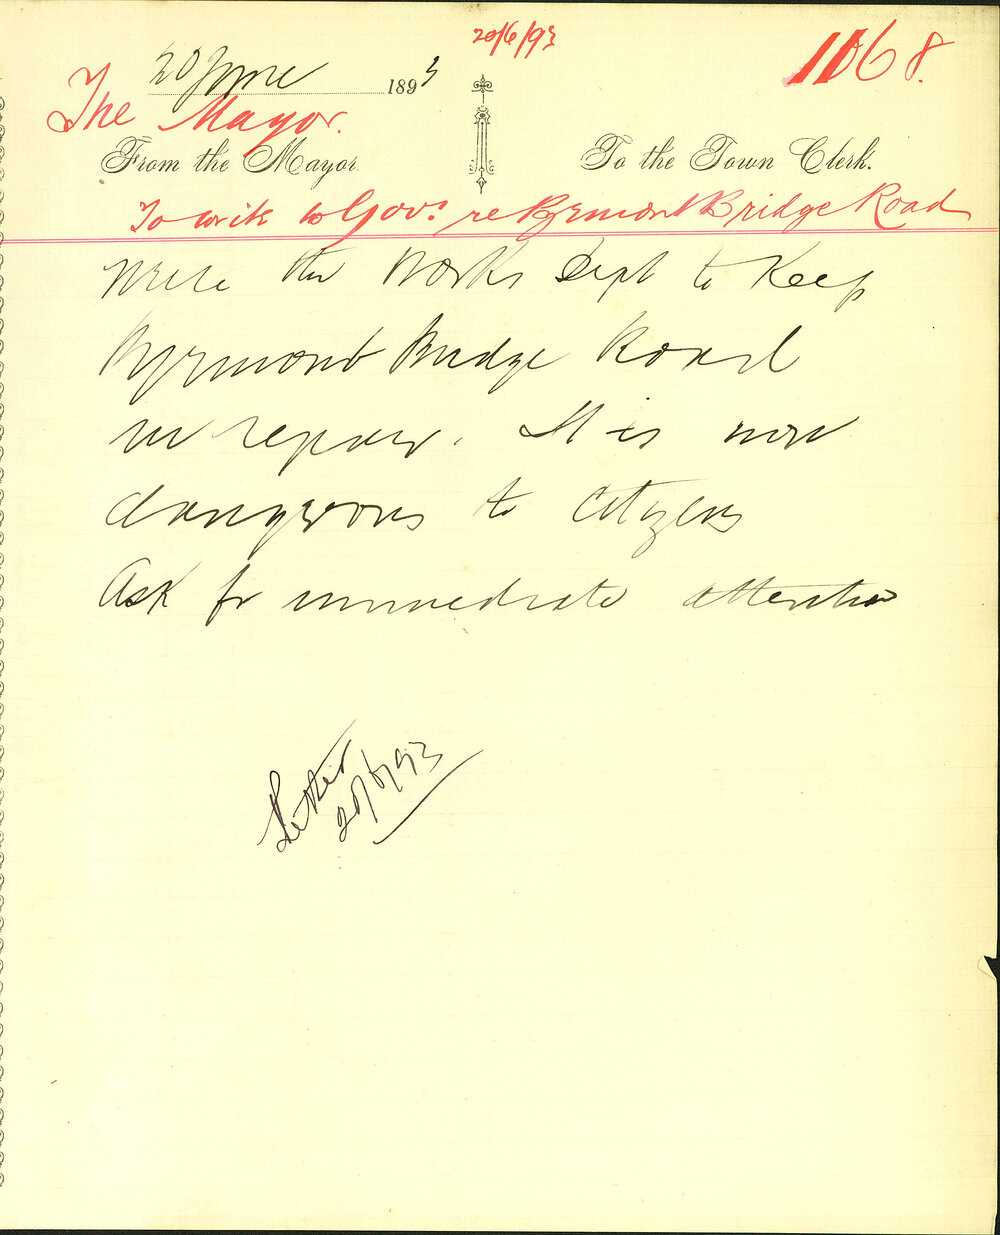 20/6/93
1068.
20 June 1893
The Mayor.
From the Mayor
To the Town Clerk.
To write to Govt. re Pyrmont Bridge Road
Write the Works Dept to Keep
Pyrmont Bridge Road
in repair. It is now
dangerous to Citizens
Ask for immediate attention
Letter
20/6/93